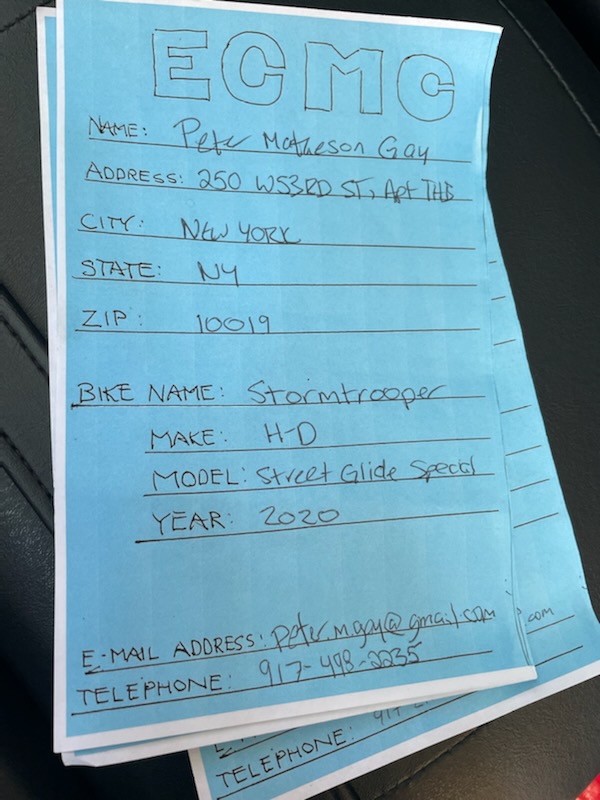 ECMC
NAME: Peter Matheson Gay
ADDRESS: 250 W53RD ST, Apt TH5
CITY: NEW YORK
STATE: NY
ZIP: 10019
BIKE NAME: Stormtrooper
MAKE: H-D
MODEL: Street Glide Special
YEAR: 2020
E-MAIL ADDRESS: peter.m.gay@gmail.com
TELEPHONE: 917-498-2235
.com
TELEPHONE: 917